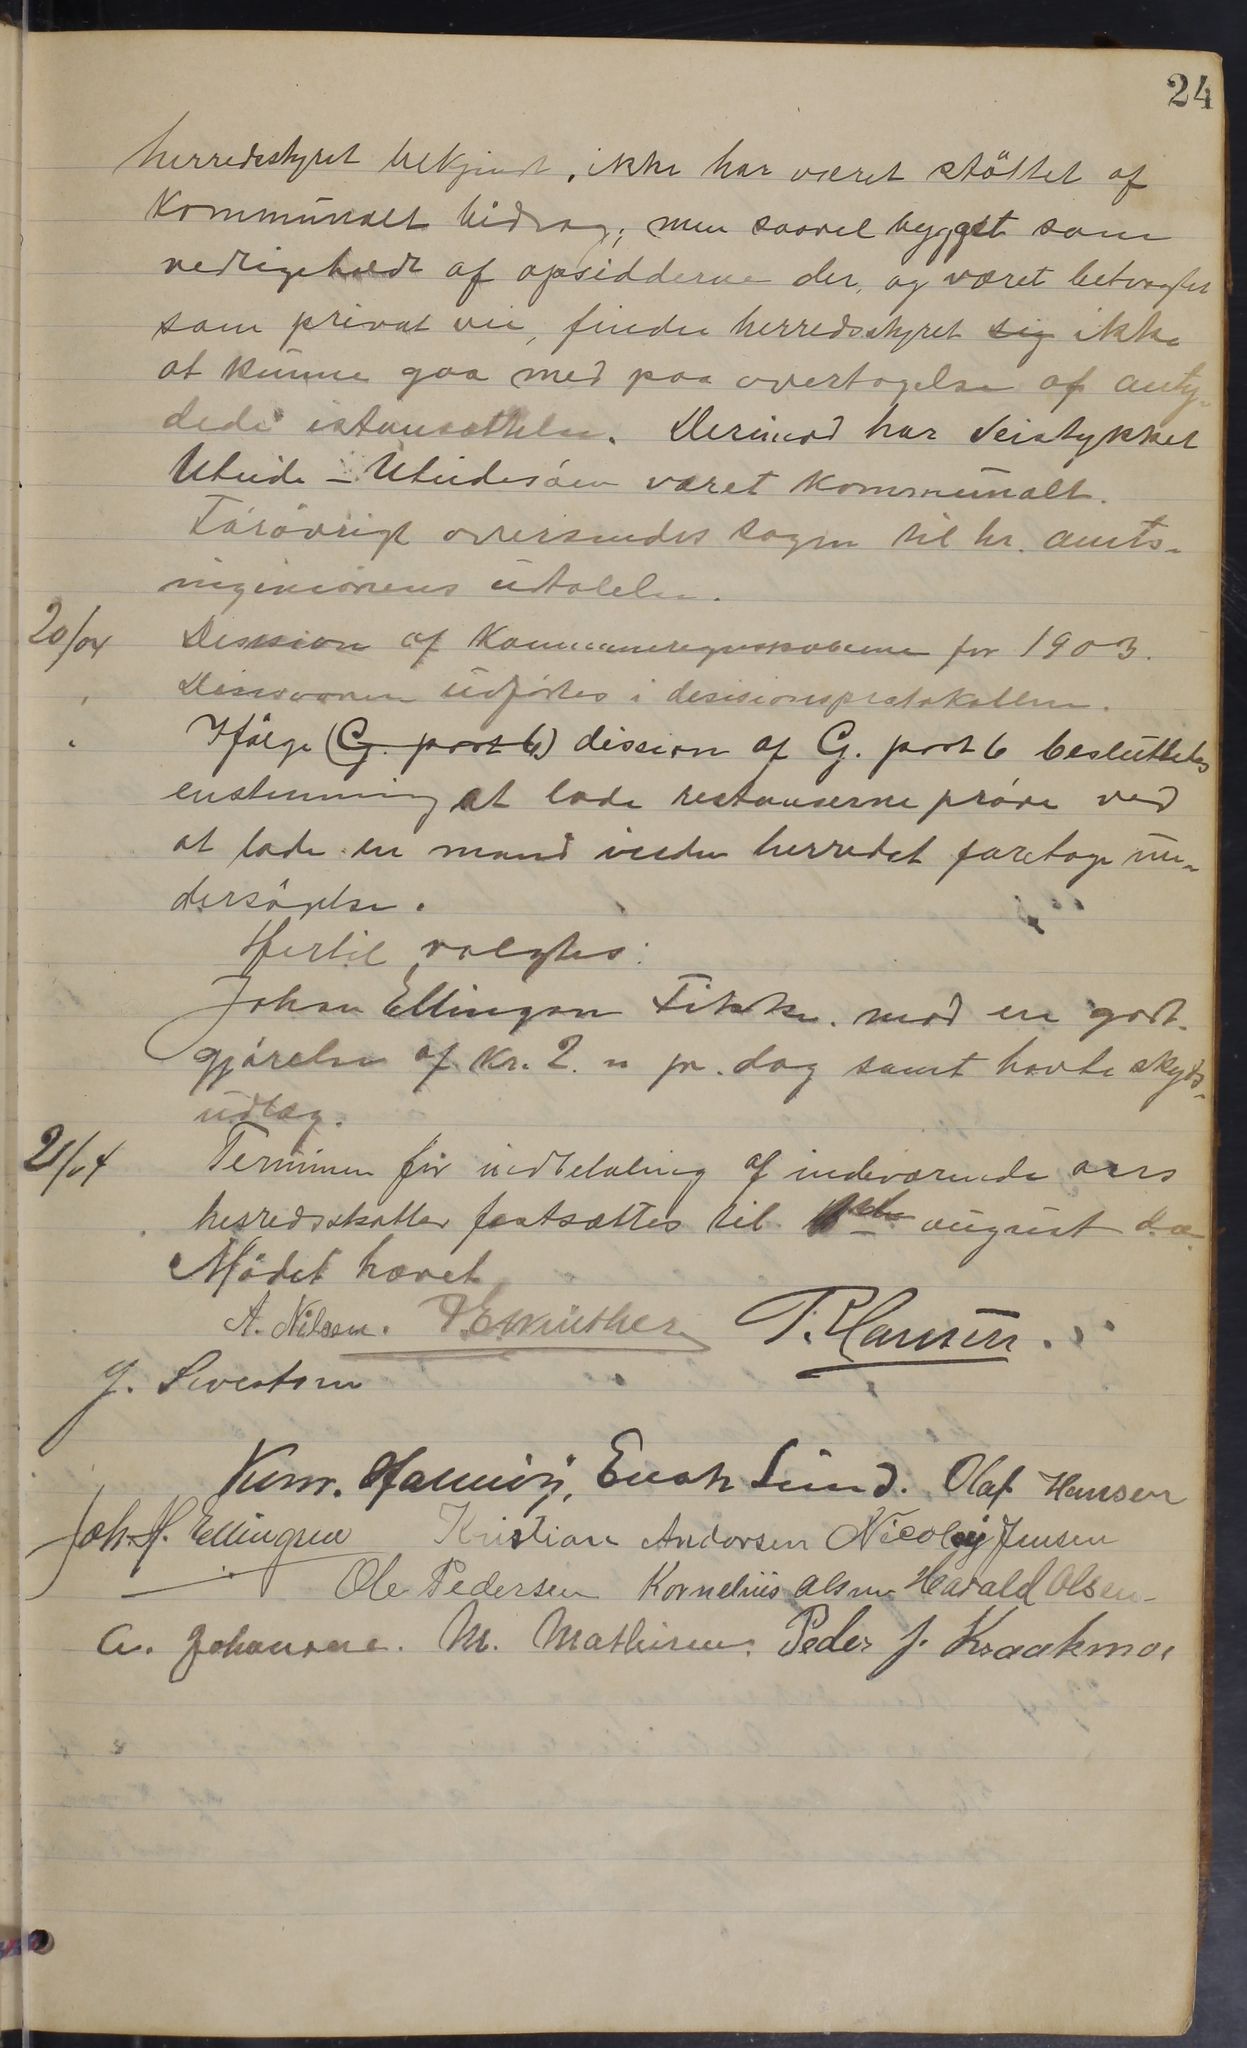 24
herredsstyret bekjendt, ikke har været støttet af
kommunalt bidrag, men saavel bygget som
vedligeholdt af opsidderne der, og været betragtet
som privat vei, finder herredsstyret sig ikke
at kunne gaa med paa overtagelse af anty-
dede istansættelse. Derimod har veistykket
været kommunalt.
Forøvrigt oversendes sagen til hr. amts-
ingeniørens udtalelse.
20/04 Desision af Kommuneregnskaberne for 1903.
Desisionen udførtes i desisionsprotokollen.
Ifølge (G. post 6) dission af G. post 6 besluttedes
enstemmig at lade restanserne prøve ved
at lade en mand inden herredet foretage un-
dersøgelse.
Hertil valgtes:
Johan Ellingsen mod en godt-
gjørelse af Kr. 2. " pr. dag samt havte skyds-
udlæg.
21/04 Terminen for indbetaling af indeværende aars
herredsskatter fastsættes til august d.a.
Mødet hævet
A. Nilsen. P. Hansen.
J. Sivertsen
Enok Lund. Olaf Hansen
Joh. H. Ellingsen Kristian Andorsen Nicolay Jensen
Ole Pedersen Kornelius Olsen Harald Olsen
A. Johansen. M. Mathisen. Peder J. Kraakmo